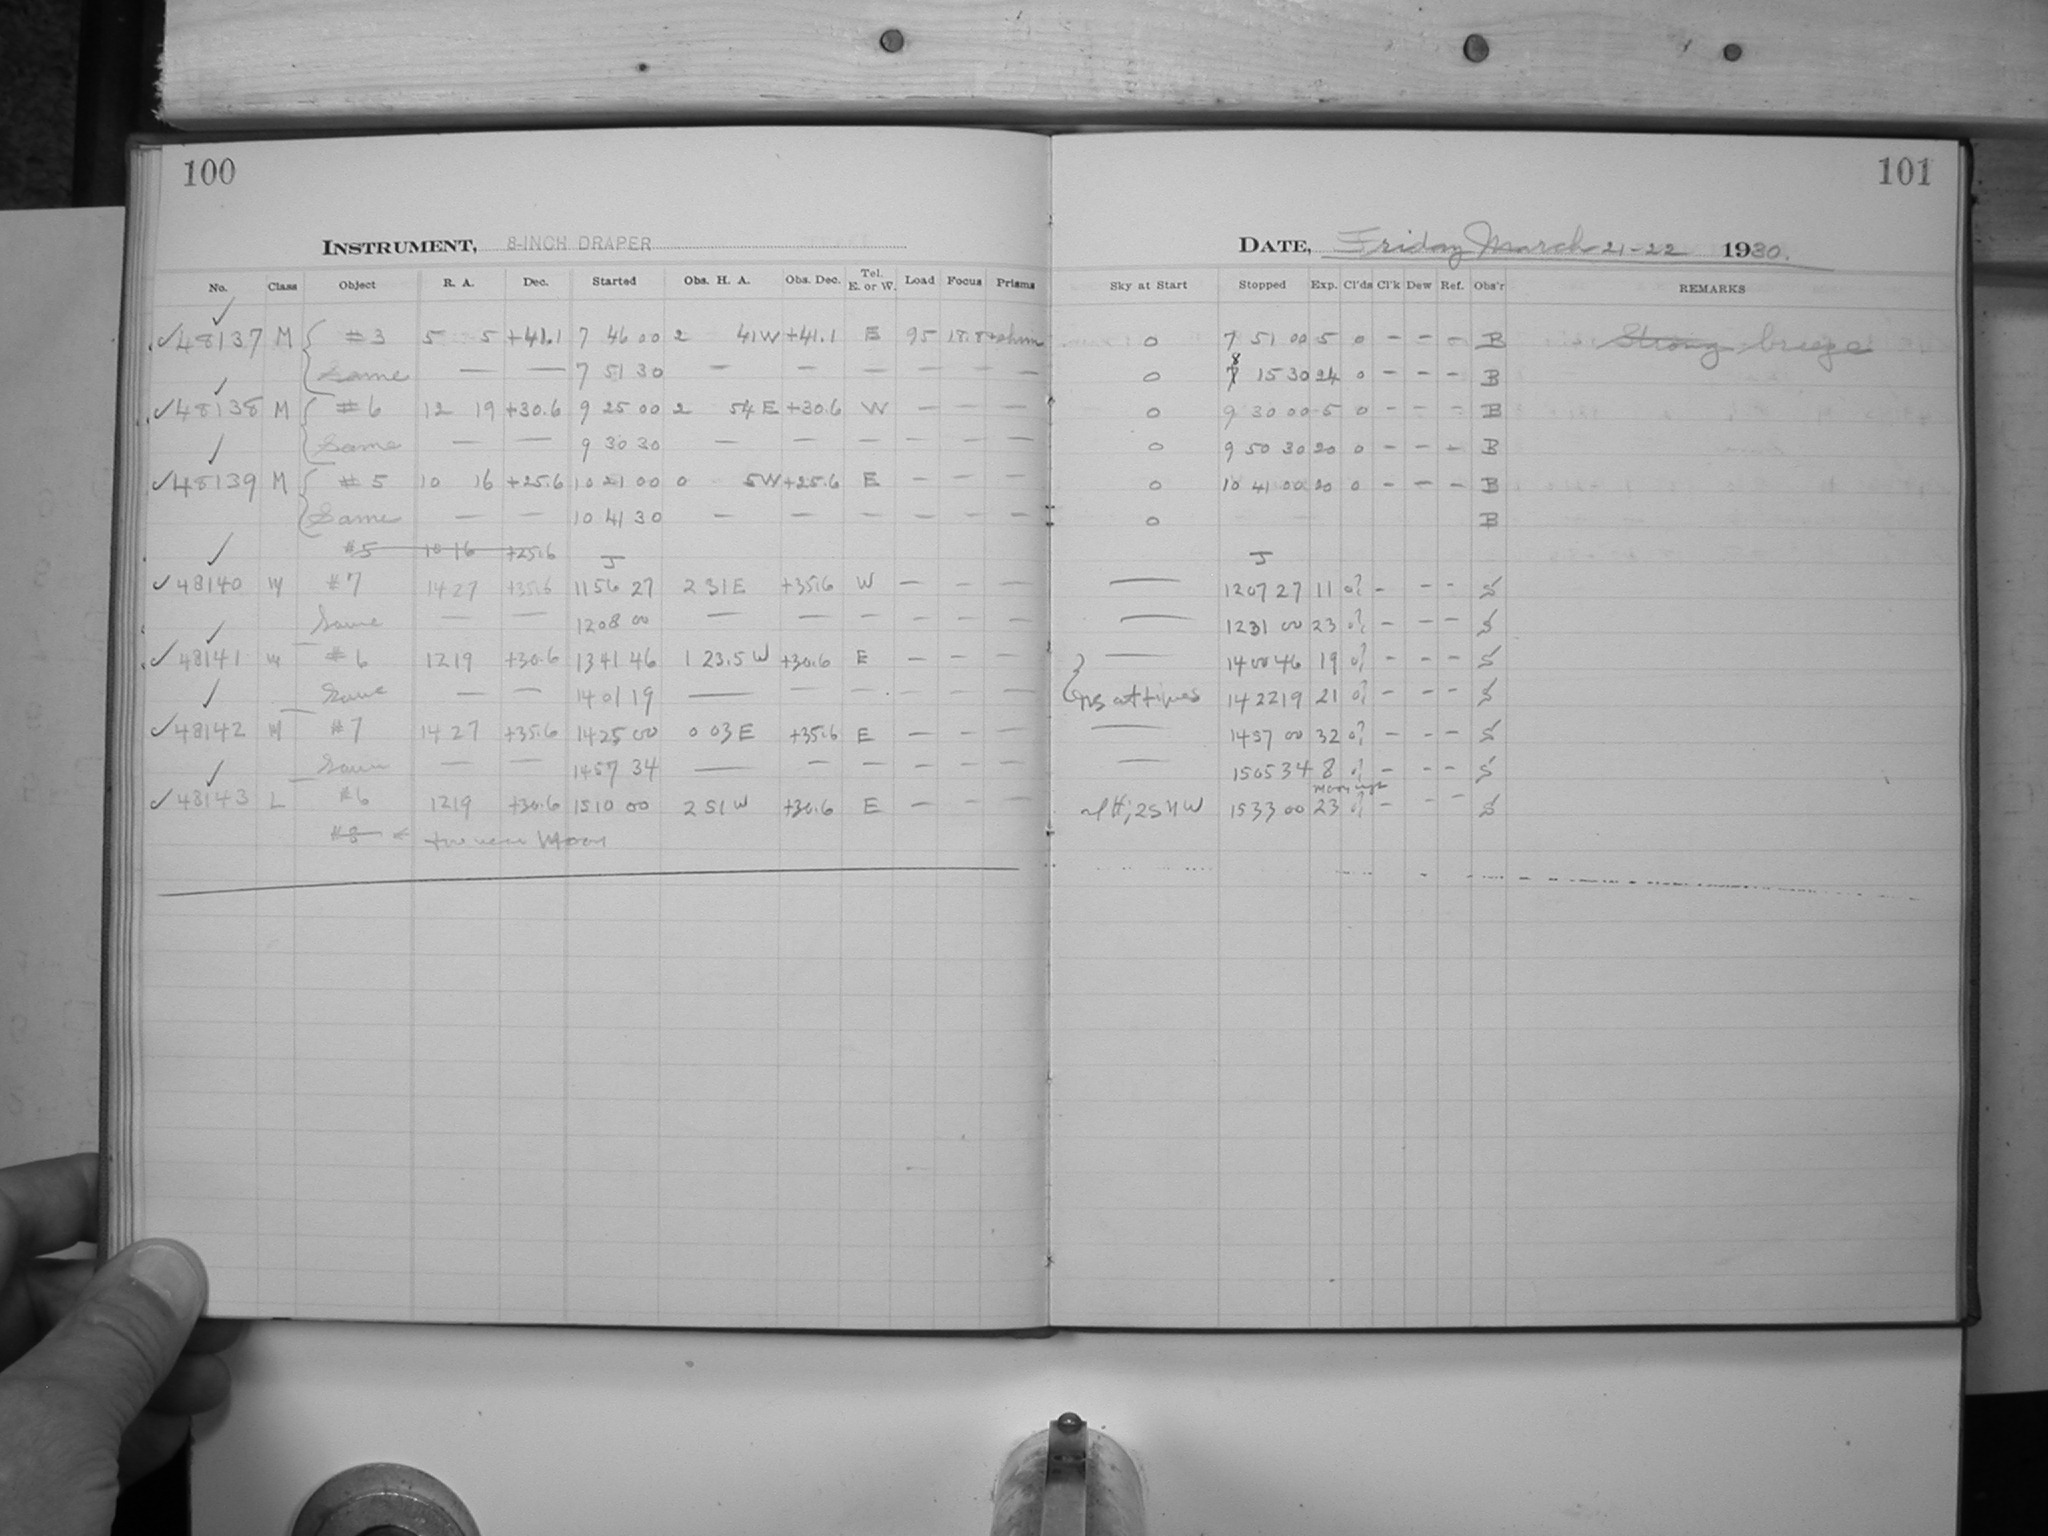 100
101
INSTRUMENT, 8-INCH DRAPER
DATE, Friday March 21-22 1930.
No. Class Object R. A. Dec. Started Obs. H. A. Obs. Dec. Tel. E. or W. Load Focus Prisms Sky at Start Stopped Exp. Cl'ds Cl'k Dew Ref. Obs'r REMARKS
✓48137 M #3 5 5 +41.1 7 46 00 2 41W +41.1 E 95 18.8 0 7 51 00 5 0 – – – B Strong breeze
Same — — 7 51 30 — — — — — — 0 8 15 30 24 0 – – – B
✓48138 M #6 12 19 +30.6 9 25 00 2 54 E +30.6 W — — — 0 9 30 00 5 0 – – – B
Same — — 9 30 30 — — — — — — 0 9 50 30 20 0 – – – B
✓48139 M #5 10 16 +25.6 10 21 00 0 5W +25.6 E — — — 0 10 41 00 20 0 – – – B
Same — — 10 41 30 — — — — — — 0 B
#5 10 16 +25.6 J J
✓48140 M #7 14 27 +35.6 11 56 27 2 31 E +35.6 W — — — — 12 07 27 11 0? – – – S
Same — — 12 08 00 — — — — — — — 12 31 00 23 0? – – – S
✓48141 M #6 12 19 +30.6 13 41 46 1 23.5 W +30.6 E — — — — 14 00 46 19 0? – – – S
Same — — 14 01 19 — — — — — — at times 14 22 19 21 0? – – – S
✓48142 M #7 14 27 +35.6 14 25 00 0 03 E +35.6 E — — — — 14 57 00 32 0? – – – S
Same — — 14 57 34 — — — — — — — 15 05 34 8 0? – – – S
✓48143 L #6 12 19 +30.6 15 10 00 2 51 W +30.6 E — — — 15 33 00 23 0? – – – S
#8 too near Moon